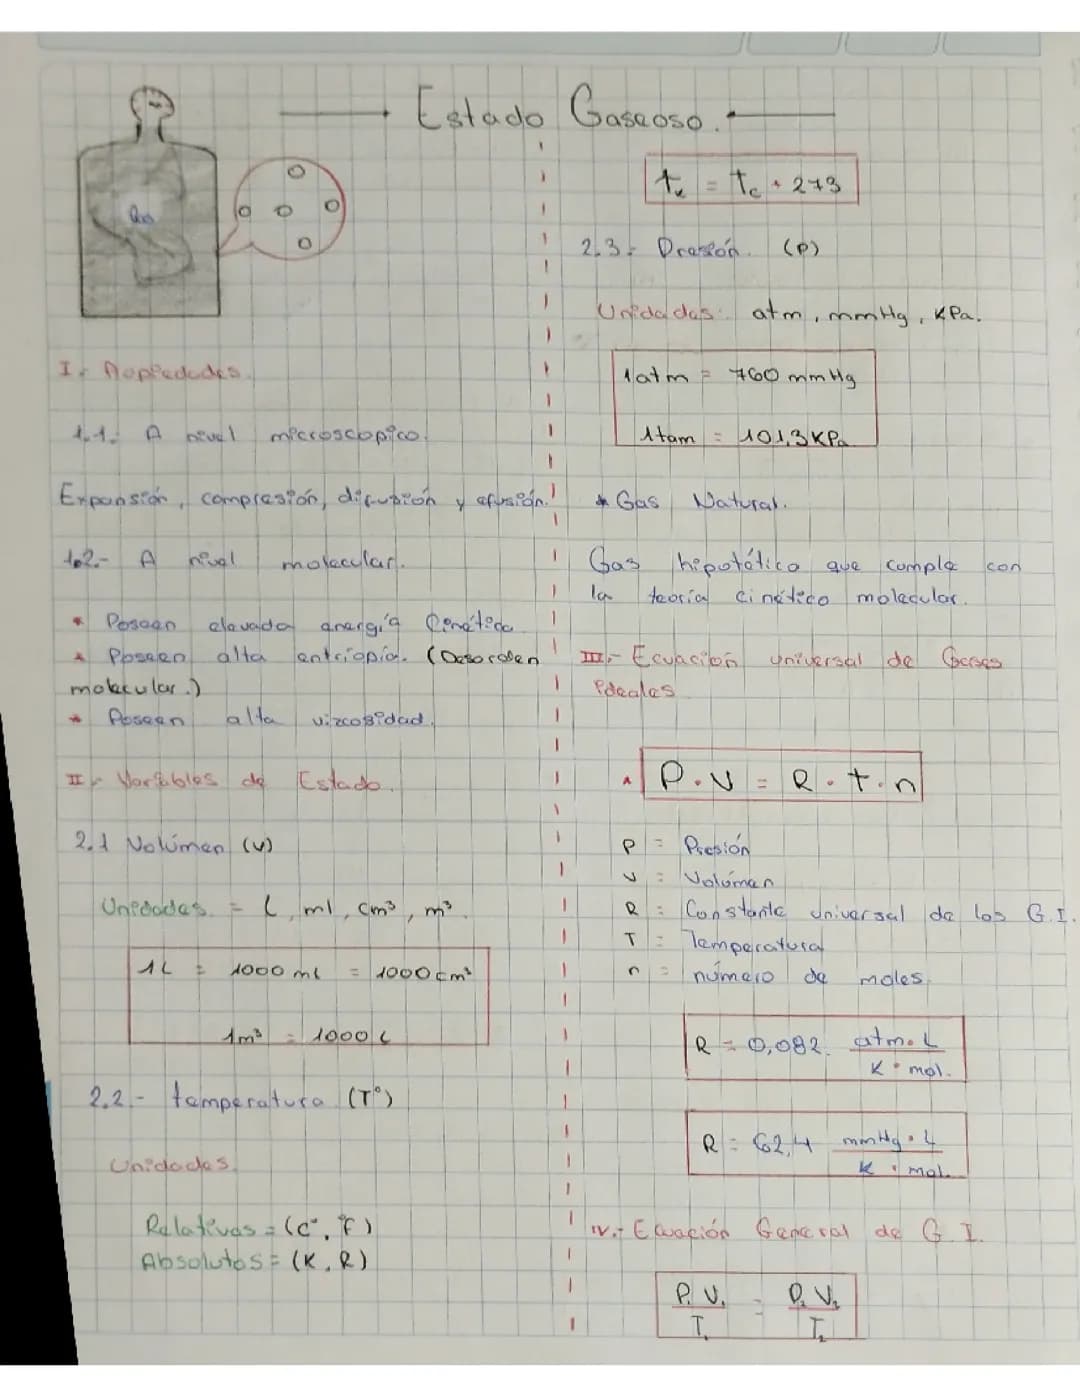 Estado Gaseoso.
Gas
I.- Propiedades.
1.1.- A nivel microscopico.
Expansión, compresión, difusión y efusión.
1.2.- A nivel molecular.
* Poseen elevada energía Cinética
* Poseen alta entriopía. (Desorden
molecular.)
* Poseen alta vizcosidad.
II.- Variables de Estado.
2.1 Volúmen (V)
Unidades = L, ml, cm³, m³.
1L = 1000 ml = 1000 cm³
1m³ = 1000 L
2.2.- temperatura (T°)
Unidades.
Relativas = (C°, °F)
Absolutas = (K, R)
tₖ = t꜀ + 273
2.3.- Presión. (P)
Unidades: atm, mmHg, KPa.
1atm = 760 mmHg
1tam = 101,3 KPa
* Gas Natural.
Gas hipotético que cumple con
la teoría cinético molecular.
III.- Ecuación universal de Gases
ideales
* P . V = R . t . n
P = Presión
V = Volúmen
R = Constante universal de los G.I.
T = Temperatura
n = número de moles.
R = 0,082. atm.L
K . mol.
R = 62,4 mmHg . L
K . mol.
IV.- Ecuación General de G.I.
P₁ V₁ = P₂ V₂
T₁ T₂